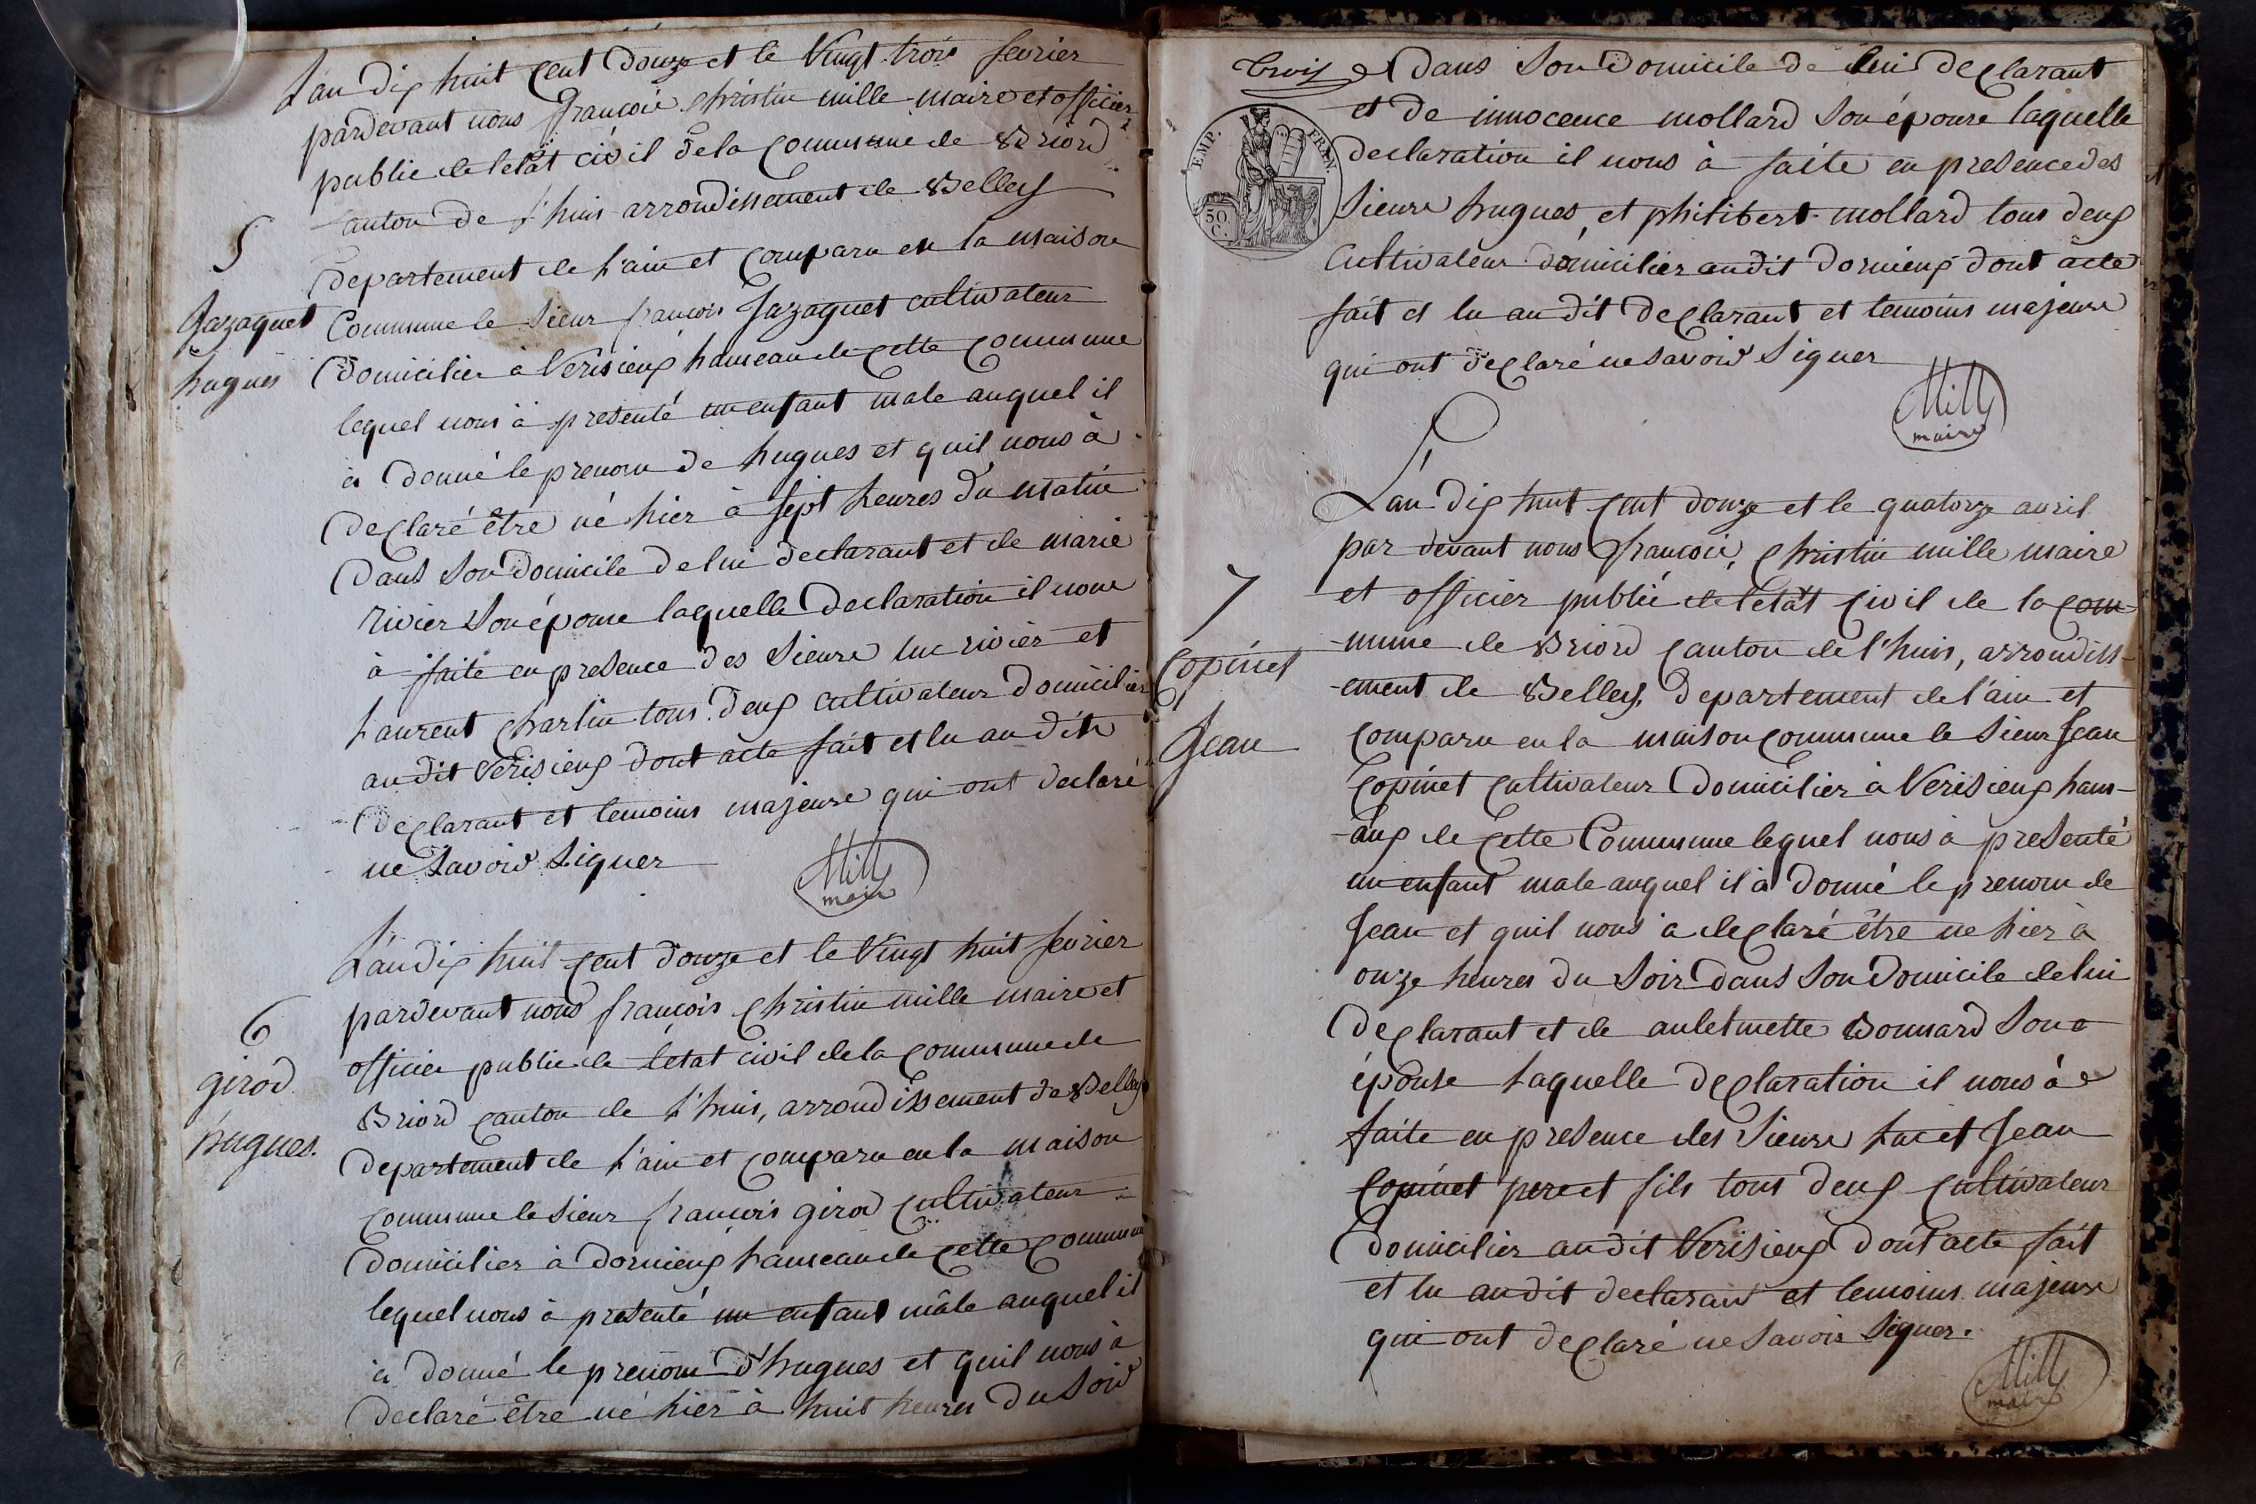 L'an dix huit cent douze et le Vingt trois fevrier
pardevant nous françois christin mille maire et officier
public de letat civil de la Commune de Briord
canton de l'huis arrondissement de Belley
departement de l'ain et comparu en la maison
Commune le Sieur françois Jazaguet cultivateur
Domicilier à Verisieux hameau de cette commune
lequel nous à presenté un enfant male auquel il
à donné le prenom de hugues et quil nous à
declaré être né hier à sept heures du matin
dans son domicile de lui declarant et de marie
rivier son épouse laquelle declaration il nous
à faite en presence des Sieurs luc rivier et
Laurent charlin tous deux cultivateur domicilier
audit Verisieux dont acte fait et lu audit
declarant et temoins majeurs qui ont declaré
ne savoir signer
Mille
maire
5
Jazaguet
hugues
L'an dix huit cent douze et le Vingt huit fevrier
pardevant nous françois christin mille maire et
officier public de letat civil de la commune de
Briord canton de l'huis, arrondissement de Belley
departement de l'ain et comparu en la maison
commune le sieur françois girod cultivateur
domicilier à dornieux hameau de cette commune
lequel nous à presenté un enfant mâle auquel il
à donné le prenom d'hugues et quil nous à
declaré être né hier à huit heures du soir
6
girod
hugues.
trois
dans son Domicile de lui declarant
et de innocence mollard son épouse laquelle
declaration il nous à faite en presence des
Sieurs hugues, et philibert mollard tous deux
Cultivateur domicilier audit dornieux dont acte
fait et lu audit declarant et temoins majeurs
qui ont declaré ne savoir signer
Mille
maire
EMP. FRAN.
50
C.
L'an dix huit cent douze et le quatorze avril
par devant nous françois, christin mille maire
et officier public de letât civil de la com-
-mune de Briord canton de l'huis, arrondiss-
-ement de Belley, departement de l'ain et
comparu en la maison commune le sieur Jean
Copinet cultivateur Domicilier à Verisieux ham-
-aux de cette Commune lequel nous à presenté
un enfant male auquel il à donné le prenom de
Jean et quil nous à declaré être ne hier à
onze heures du soir dans son domicile de lui
declarant et de Bonnard son
épouse laquelle declaration il nous à
faite en presence des Sieurs Luc et Jean
Copinet pere et fils tous deux cultivateur
domicilier audit Verisieux dont acte fait
et lu audit declarant et temoins majeurs
qui ont declaré ne savoir signer.
Mille
maire
7
Copinet
Jean